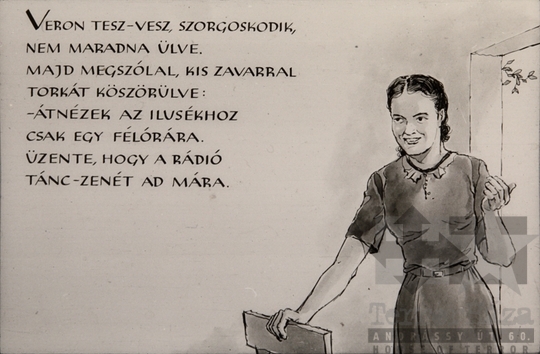 VERON TESZ-VESZ, SZORGOSKODIK,
NEM MARADNA ÜLVE.
MAJD MEGSZÓLAL, KIS ZAVARRAL
TORKÁT KÖSZÖRÜLVE:
-ÁTNÉZEK AZ ILUSÉKHOZ
CSAK EGY FÉLÓRÁRA.
ÜZENTE, HOGY A RÁDIÓ
TÁNC-ZENÉT AD MÁRA.
ANDRÁSSY ÚT 60.
HOUSE OF TERROR